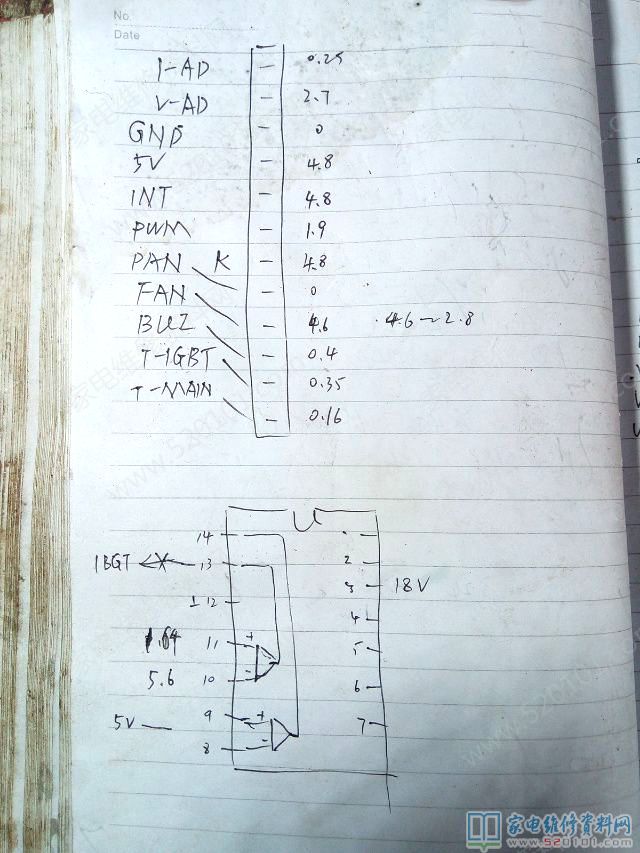 No.
Date
I-AD 0.25
V-AD 2.7
GND 0
5V 4.8
INT 4.8
PWM 1.9
PAN K 4.8
FAN 0
BUZ 4.6 4.6~2.8
T-IGBT 0.4
T-MAIN 0.35
0.16
14
IBGT 13 2
3 18V
⊥ 12 4
1.64 11 + 5
5.6 10 - 6
5V 9 + 7
8 -
家电维修资料网
www.520101.com